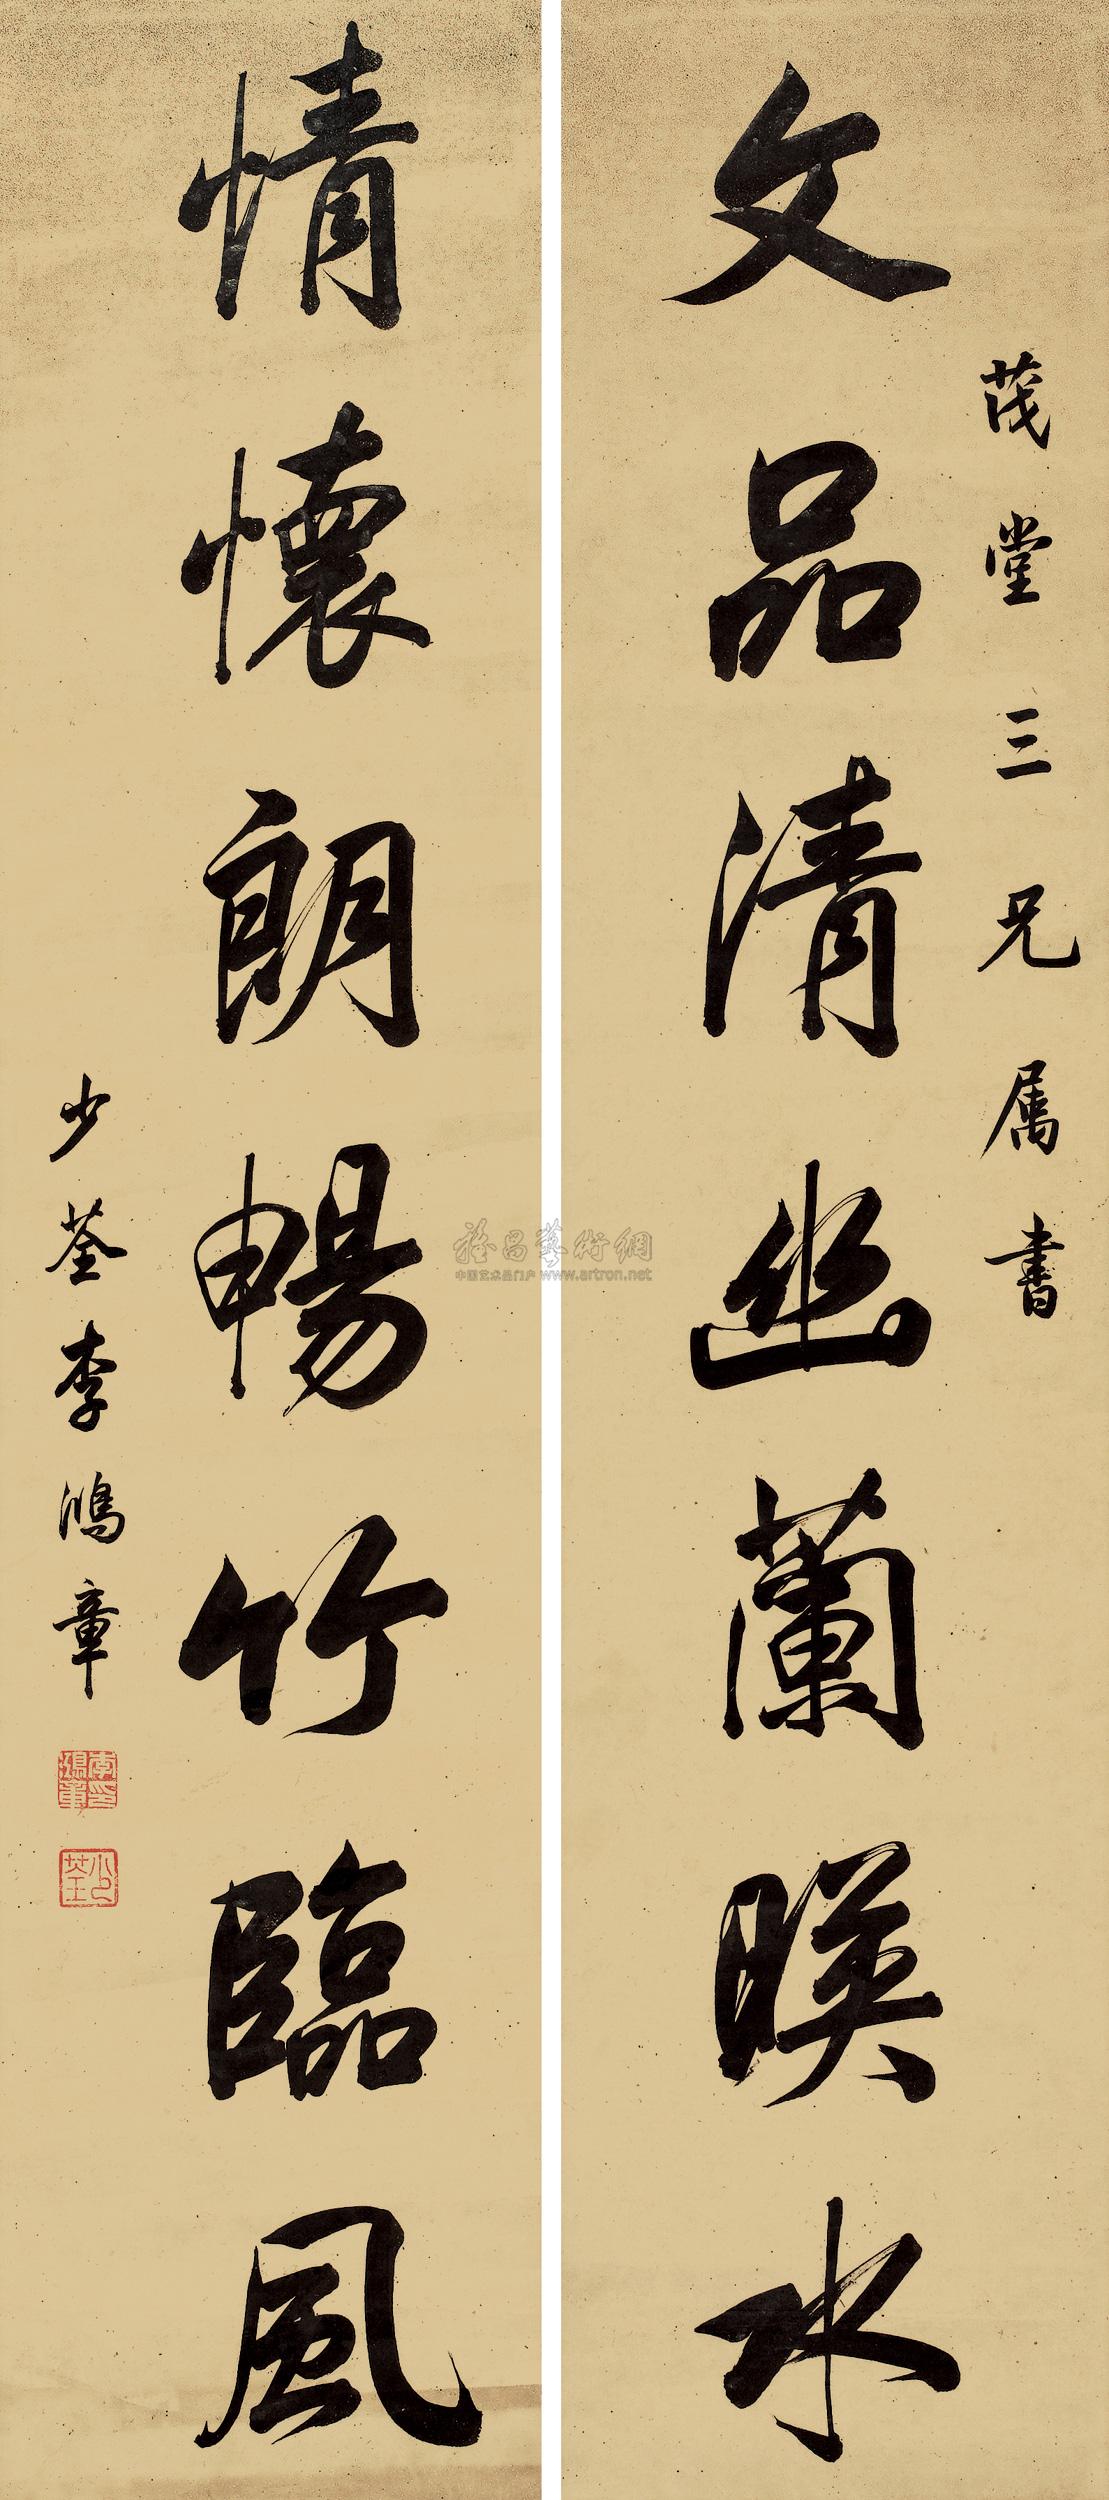 茂堂三兄属書
文品清幽蘭暎水
情懷朗暢竹臨風
少荃李鴻章
李鴻章印
少荃
雅昌藝術網
中国艺术品门户 www.artron.net